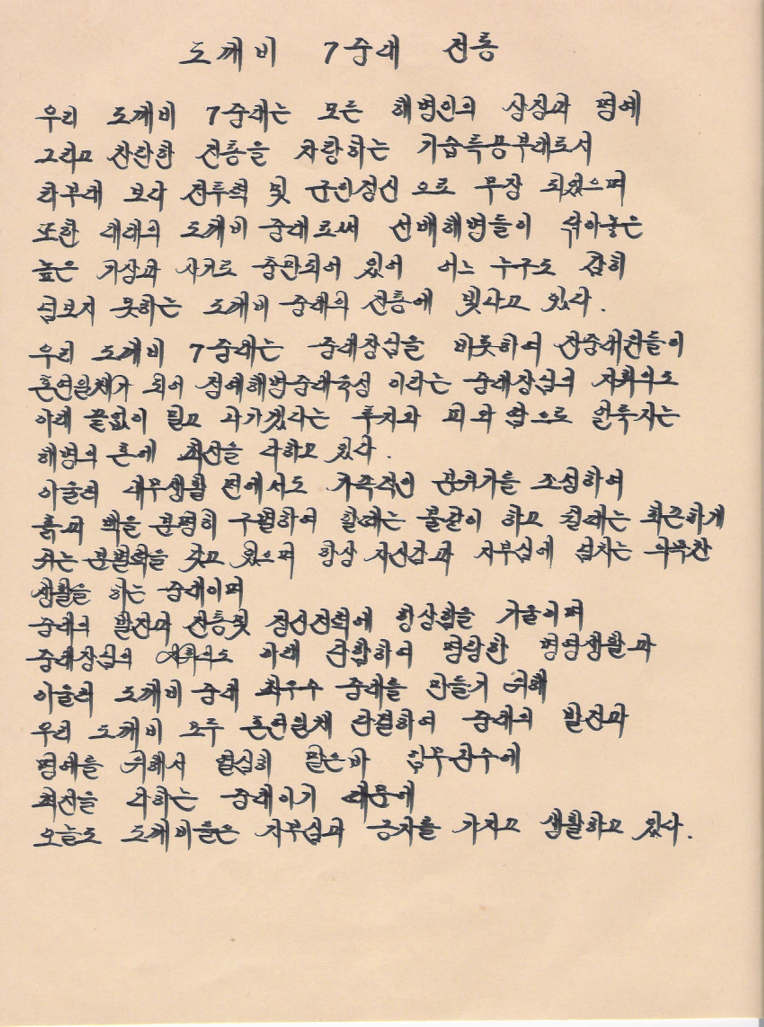 도깨비 7중대 전통
우리 도깨비 7중대는 모든 해병인의 상징과 명예
그리고 찬란한 전통을 자랑하는 기습특공부대로서
타부대 보다 전투력 및 군인정신 으로 무장 되었으며
또한 대대의 도깨비 중대로써 선배해병들이 닦아놓은
높은 기상과 사기로 충만되어 있어 어느 누구도 감히
넘보지 못하는 도깨비 중대의 전통에 빛나고 있다.
우리 도깨비 7중대는 중대장님을 비롯하여 전중대원들이
혼연일체가 되어 정예해병중대육성 이라는 중대장님의 지휘의도
아래 끝없이 밀고 나가겠다는 투지와 피와 땀으로 얼룩지는
해병의 혼에 최선을 다하고 있다.
아울러 내무생활 면에서도 가족적인 분위기를 조성하여
흙과 백을 분명히 구별하여 할때는 불같이 하고 쉴때는 화끈하게
쉬는 분별력을 갖고 있으며 항상 자신감과 자부심에 넘치는 의욕찬
생활을 하는 중대이며
중대의 발전과 전통및 정신전력에 항상힘을 기울이며
중대장님의 지휘의도 아래 단합하여 명랑한 병영생활과
아울러 도깨비 중대 최우수 중대를 만들기 위해
우리 도깨비 모두 혼연일체 단결하여 중대의 발전과
명예를 위해서 열심히 맡은바 임무완수에
최선을 다하는 중대이기 때문에
오늘도 도깨비들은 자부심과 긍지를 가지고 생활하고 있다.